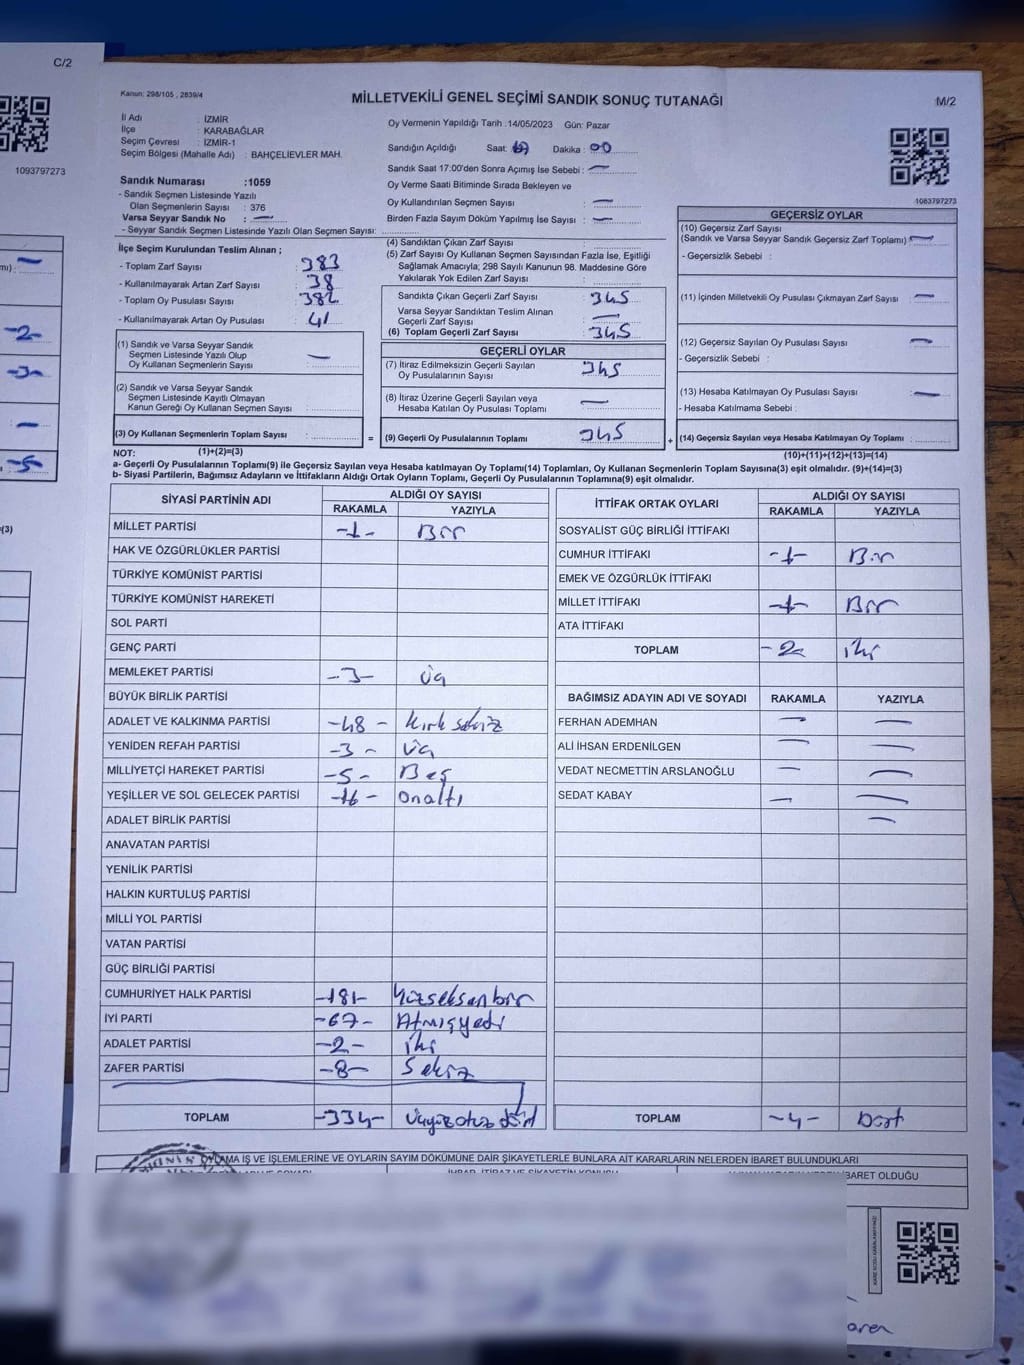 C/2
1093797273
Kanun: 298/105 , 2839/4
MİLLETVEKİLİ GENEL SEÇİMİ SANDIK SONUÇ TUTANAĞI
M/2
İl Adı : İZMİR
İlçe : KARABAĞLAR
Seçim Çevresi : İZMİR-1
Seçim Bölgesi (Mahalle Adı) : BAHÇELİEVLER MAH.
Oy Vermenin Yapıldığı Tarih :14/05/2023 Gün: Pazar
Sandığın Açıldığı Saat: Dakika : 00
Sandık Saat 17:00'den Sonra Açımış İse Sebebi : —
Oy Verme Saati Bitiminde Sırada Bekleyen ve
Oy Kullandırılan Seçmen Sayısı : —
Birden Fazla Sayım Döküm Yapılmış İse Sayısı : —
1083797273
Sandık Numarası :1059
- Sandık Seçmen Listesinde Yazılı
Olan Seçmenlerin Sayısı : 376
Varsa Seyyar Sandık No : —
- Seyyar Sandık Seçmen Listesinde Yazılı Olan Seçmen Sayısı:
İlçe Seçim Kurulundan Teslim Alınan ;
- Toplam Zarf Sayısı : 383
- Kullanılmayarak Artan Zarf Sayısı : 38
- Toplam Oy Pusulası Sayısı : 382
- Kullanılmayarak Artan Oy Pusulası : 41
(1) Sandık ve Varsa Seyyar Sandık
Seçmen Listesinde Yazılı Olup
Oy Kullanan Seçmenlerin Sayısı : —
(2) Sandık ve Varsa Seyyar Sandık
Seçmen Listesinde Kayıtlı Olmayan
Kanun Gereği Oy Kullanan Seçmen Sayısı :
(3) Oy Kullanan Seçmenlerin Toplam Sayısı :
(1)+(2)=(3)
(4) Sandıktan Çıkan Zarf Sayısı :
(5) Zarf Sayısı Oy Kullanan Seçmen Sayısından Fazla İse, Eşitliği
Sağlamak Amacıyla; 298 Sayılı Kanunun 98. Maddesine Göre
Yakılarak Yok Edilen Zarf Sayısı :
Sandıkta Çıkan Geçerli Zarf Sayısı : 345
Varsa Seyyar Sandıktan Teslim Alınan
Geçerli Zarf Sayısı : —
(6) Toplam Geçerli Zarf Sayısı : 345
GEÇERLİ OYLAR
(7) İtiraz Edilmeksizin Geçerli Sayılan
Oy Pusulalarının Sayısı : 345
(8) İtiraz Üzerine Geçerli Sayılan veya
Hesaba Katılan Oy Pusulası Toplamı : —
= (9) Geçerli Oy Pusulalarının Toplamı : 345 +
GEÇERSİZ OYLAR
(10) Geçersiz Zarf Sayısı
(Sandık ve Varsa Seyyar Sandık Geçersiz Zarf Toplamı) : —
- Geçersizlik Sebebi :
(11) İçinden Milletvekili Oy Pusulası Çıkmayan Zarf Sayısı : —
(12) Geçersiz Sayılan Oy Pusulası Sayısı : —
- Geçersizlik Sebebi :
(13) Hesaba Katılmayan Oy Pusulası Sayısı : —
- Hesaba Katılmama Sebebi :
(14) Geçersiz Sayılan veya Hesaba Katılmayan Oy Toplamı :
(10)+(11)+(12)+(13)=(14)
NOT:
a- Geçerli Oy Pusulalarının Toplamı(9) ile Geçersiz Sayılan veya Hesaba katılmayan Oy Toplamı(14) Toplamları, Oy Kullanan Seçmenlerin Toplam Sayısına(3) eşit olmalıdır. (9)+(14)=(3)
b- Siyasi Partilerin, Bağımsız Adayların ve İttifakların Aldığı Ortak Oyların Toplamı, Geçerli Oy Pusulalarının Toplamına(9) eşit olmalıdır.
SİYASİ PARTİNİN ADI ALDIĞI OY SAYISI
RAKAMLA YAZIYLA
MİLLET PARTİSİ -1- Bir
HAK VE ÖZGÜRLÜKLER PARTİSİ
TÜRKİYE KOMÜNİST PARTİSİ
TÜRKİYE KOMÜNİST HAREKETİ
SOL PARTİ
GENÇ PARTİ
MEMLEKET PARTİSİ -3- üç
BÜYÜK BİRLİK PARTİSİ
ADALET VE KALKINMA PARTİSİ -48- kırk sekiz
YENİDEN REFAH PARTİSİ -3- üç
MİLLİYETÇİ HAREKET PARTİSİ -5- Beş
YEŞİLLER VE SOL GELECEK PARTİSİ -16- onaltı
ADALET BİRLİK PARTİSİ
ANAVATAN PARTİSİ
YENİLİK PARTİSİ
HALKIN KURTULUŞ PARTİSİ
MİLLİ YOL PARTİSİ
VATAN PARTİSİ
GÜÇ BİRLİĞİ PARTİSİ
CUMHURİYET HALK PARTİSİ -181- Yüzseksenbir
İYİ PARTİ -67- Atmışyedi
ADALET PARTİSİ -2- iki
ZAFER PARTİSİ -8- Sekiz
TOPLAM -334- üçyüz otuz dört
İTTİFAK ORTAK OYLARI ALDIĞI OY SAYISI
RAKAMLA YAZIYLA
SOSYALİST GÜÇ BİRLİĞİ İTTİFAKI
CUMHUR İTTİFAKI -1- Bir
EMEK VE ÖZGÜRLÜK İTTİFAKI
MİLLET İTTİFAKI -1- Bir
ATA İTTİFAKI
TOPLAM -2- iki
BAĞIMSIZ ADAYIN ADI VE SOYADI RAKAMLA YAZIYLA
FERHAN ADEMHAN — —
ALİ İHSAN ERDENİLGEN — —
VEDAT NECMETTİN ARSLANOĞLU — —
SEDAT KABAY — —
TOPLAM -4- Dört
OYLAMA İŞ VE İŞLEMLERİNE VE OYLARIN SAYIM DÖKÜMÜNE DAİR ŞİKAYETLERLE BUNLARA AİT KARARLARIN NELERDEN İBARET BULUNDUKLARI
İBARET OLDUĞU